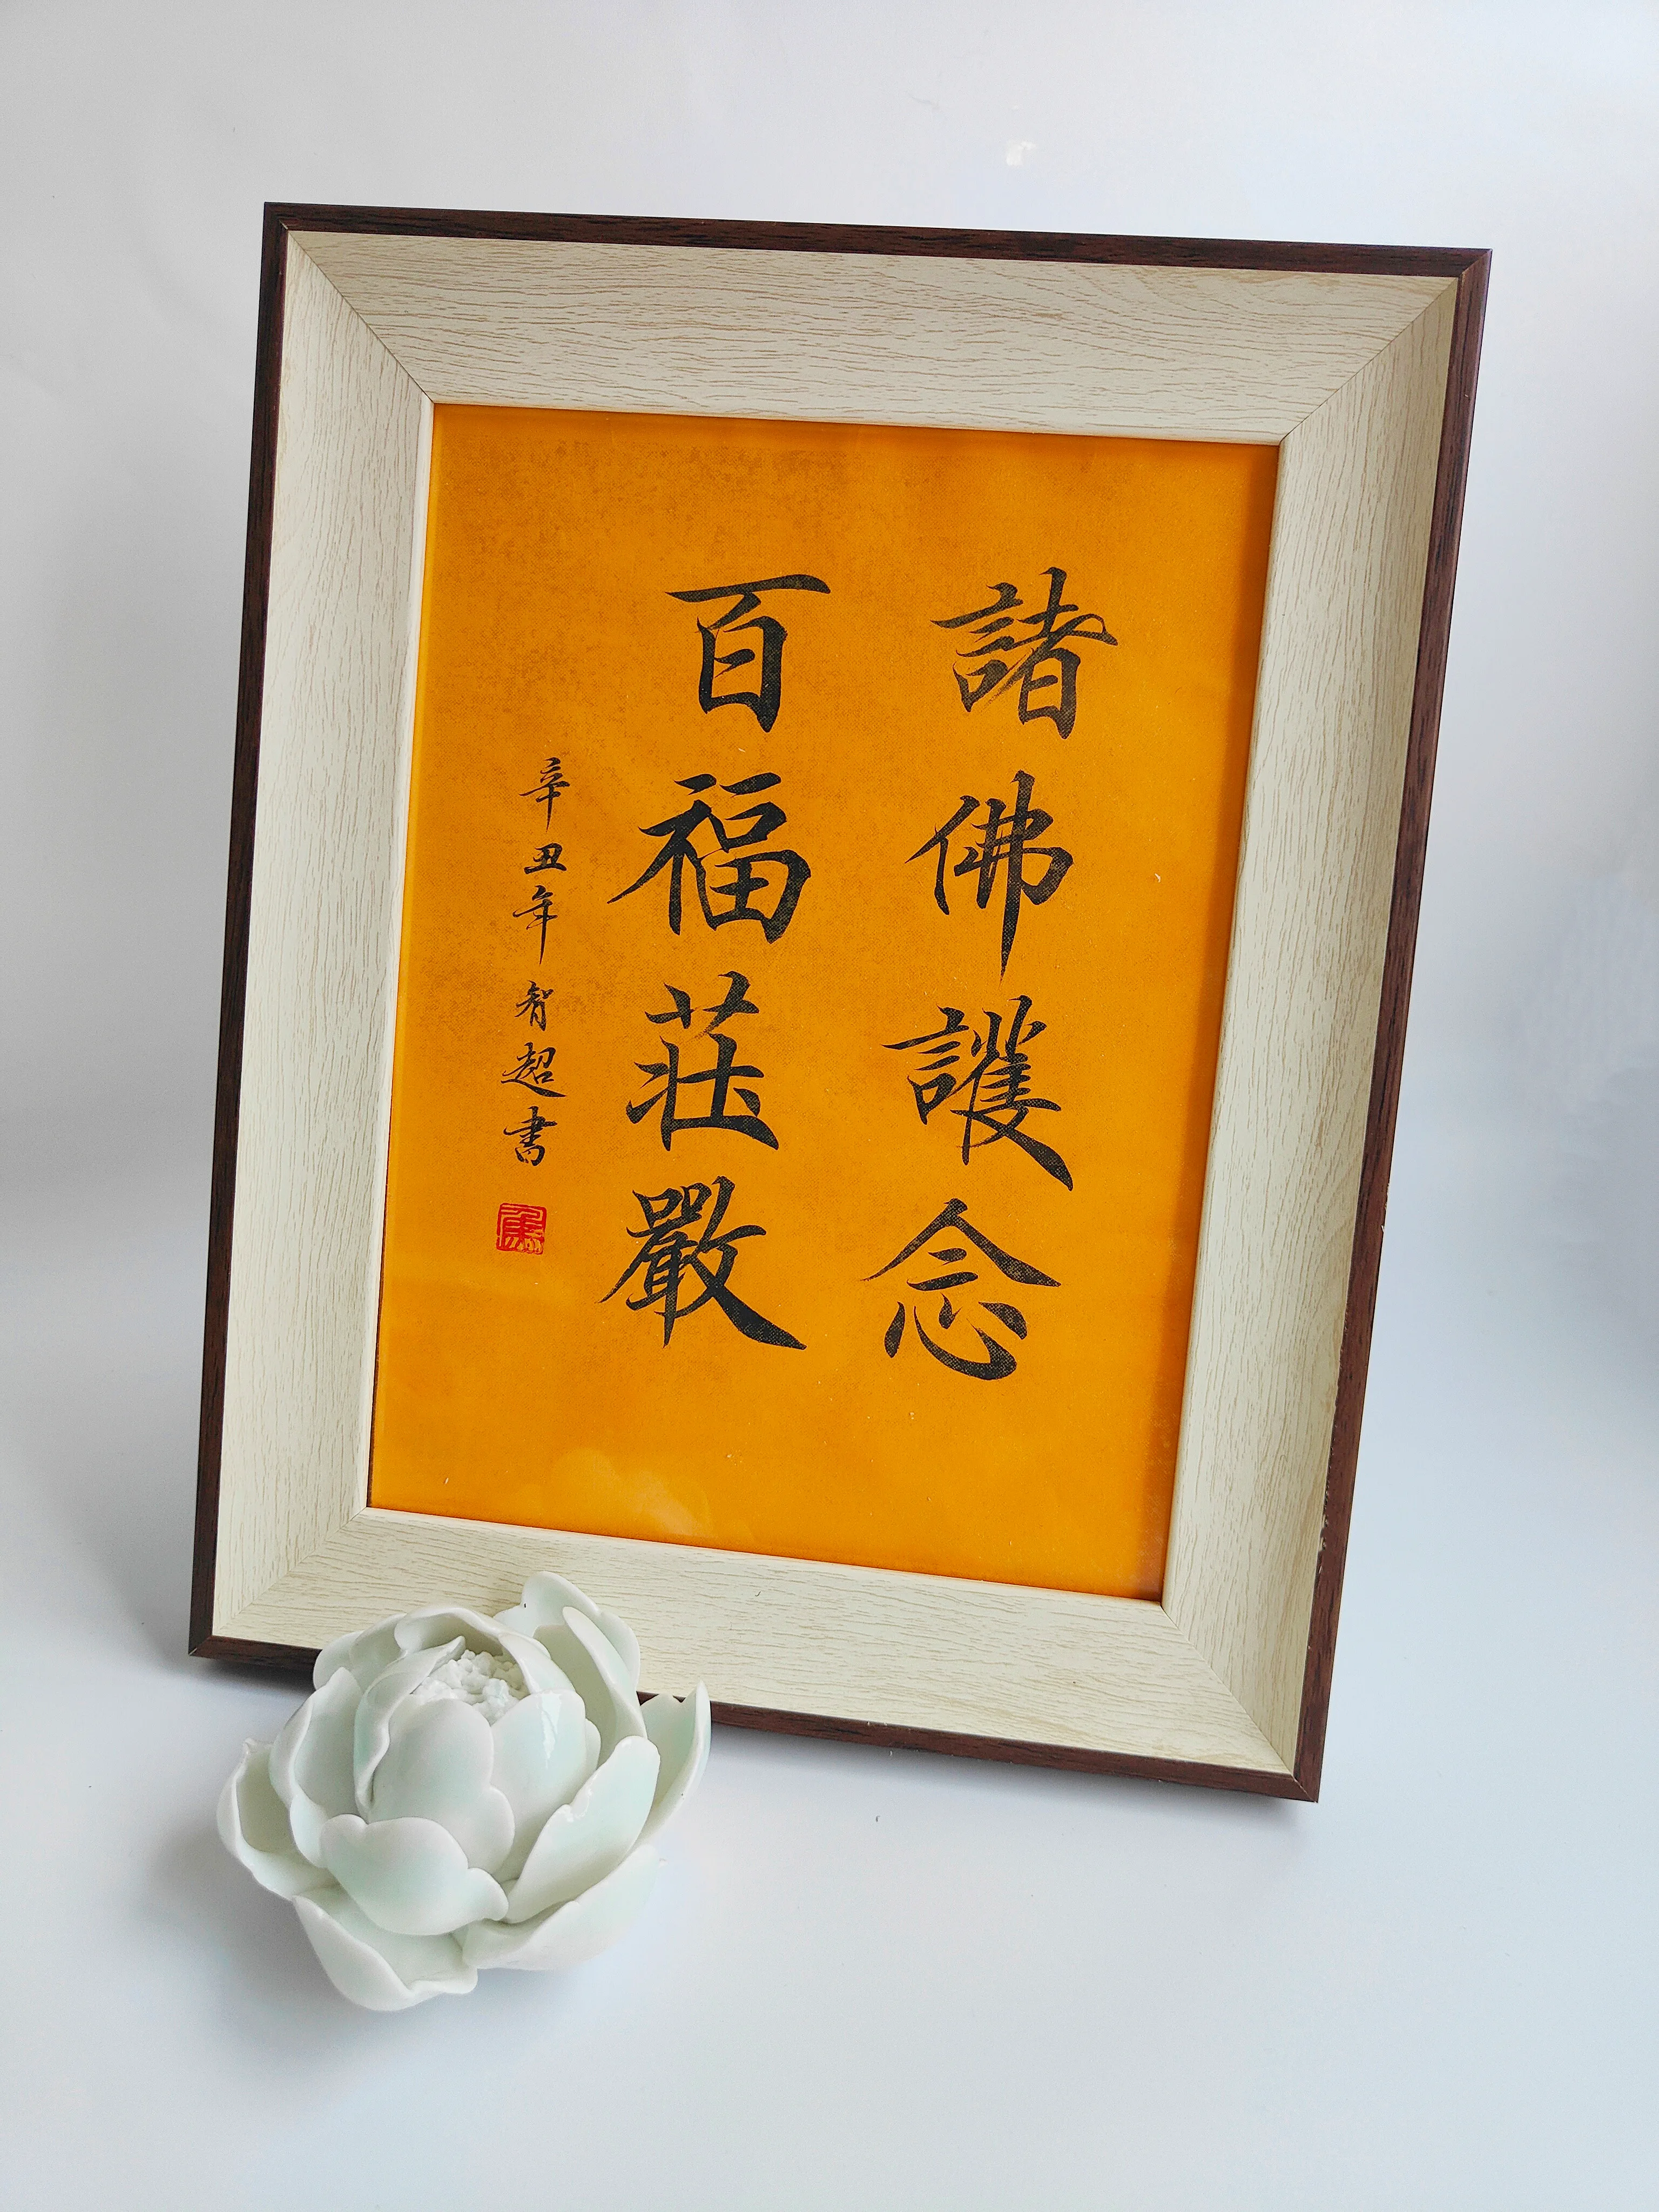 諸佛護念
百福莊嚴
辛丑年智超書